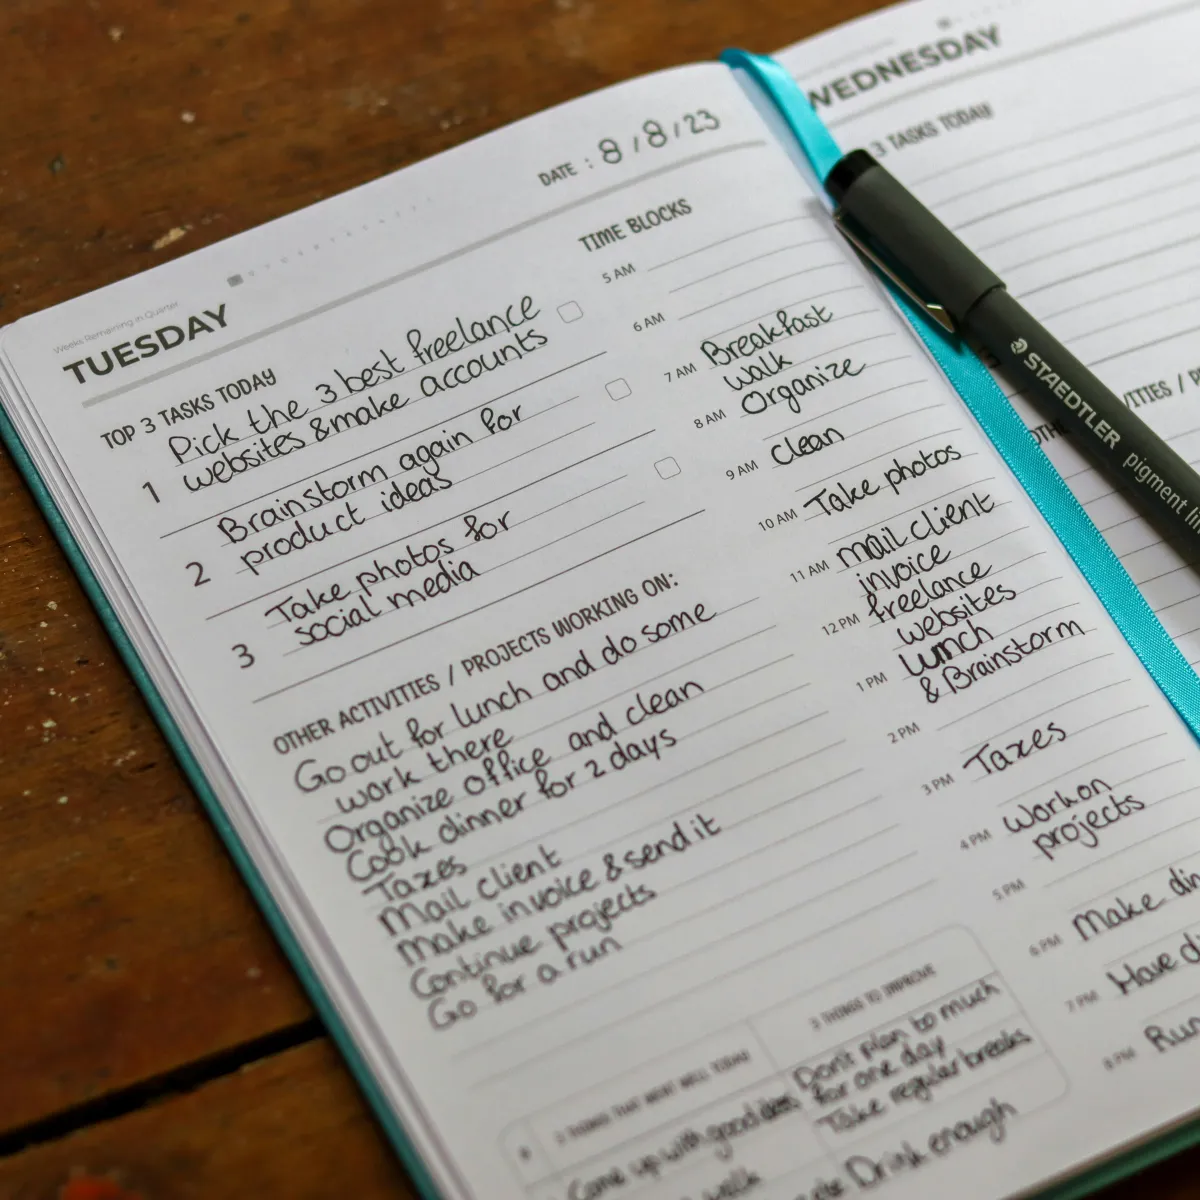 DATE : 8/8/23
Weeks Remaining in Quarter
TUESDAY
TOP 3 TASKS TODAY
1 Pick the 3 best freelance
websites & make accounts
2 Brainstorm again for
product ideas
3 Take photos for
social media
OTHER ACTIVITIES / PROJECTS WORKING ON:
Go out for lunch and do some
work there
Organize office and clean
Cook dinner for 2 days
Taxes
Mail client
Make invoice & send it
Continue projects
Go for a run
TIME BLOCKS
5 AM
6 AM
7 AM Breakfast
Walk
8 AM Organize
9 AM Clean
10 AM Take photos
11 AM Mail client
invoice
12 PM freelance
websites
1 PM lunch
& Brainstorm
2 PM
3 PM Taxes
4 PM Work on
projects
5 PM
6 PM Make din
7 PM Have d
8 PM Run
3 THINGS THAT WENT WELL TODAY
Come up with good ideas
walk
3 THINGS TO IMPROVE
Don't plan to much
for one day
Take regular breaks
Drink enough
WEDNESDAY
3 TASKS TODAY
OTHE
VITIES / P
STAEDTLER
pigment li